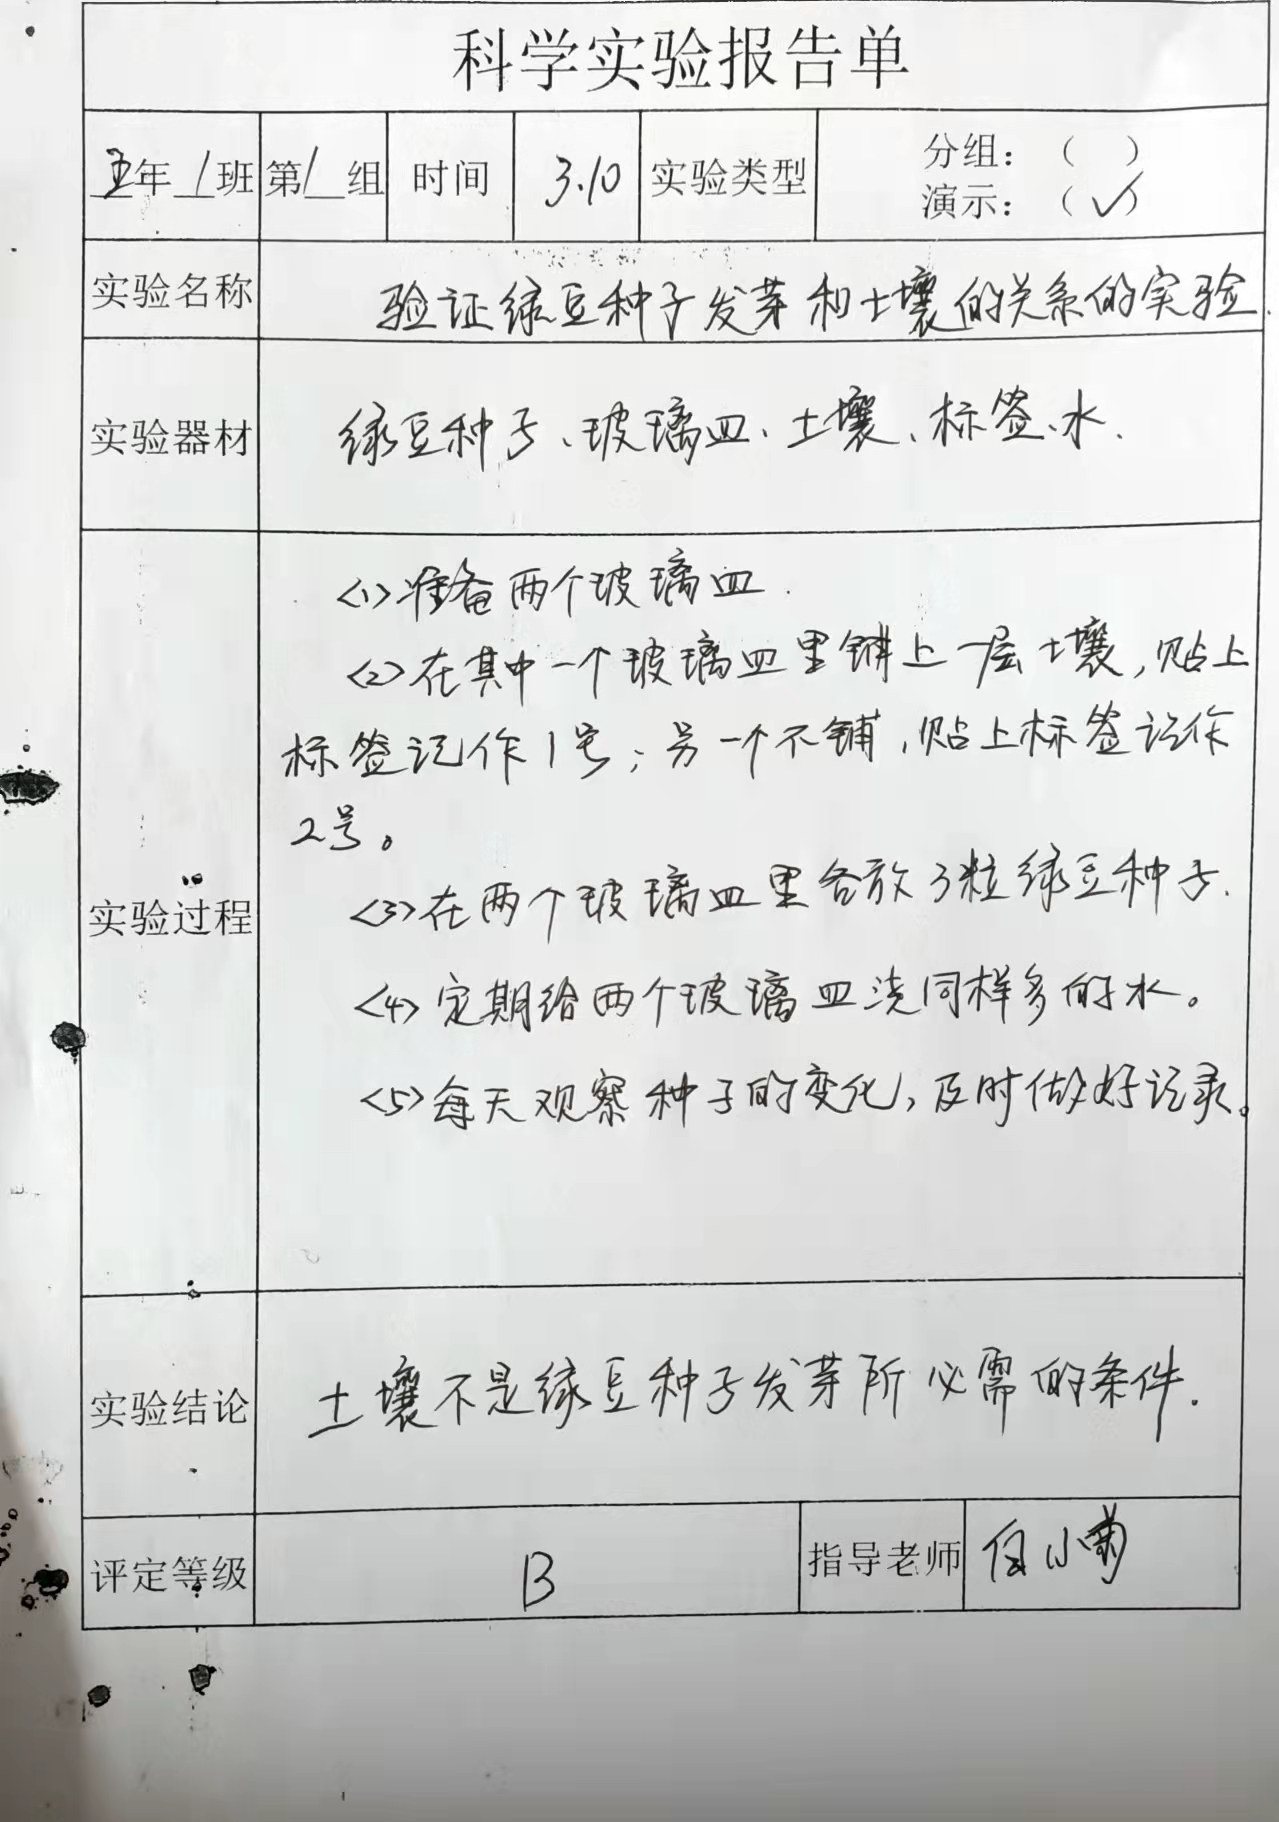 科学实验报告单
五年1班 第1组 时间 3.10 实验类型 分组：（ ）
演示：（✓）
实验名称 验证绿豆种子发芽和土壤的关系的实验.
实验器材 绿豆种子、玻璃皿、土壤、标签、水.
实验过程
<1>准备两个玻璃皿.
<2>在其中一个玻璃皿里铺上一层土壤,贴上
标签记作1号;另一个不铺,贴上标签记作
2号。
<3>在两个玻璃皿里各放3粒绿豆种子.
<4>定期给两个玻璃皿浇同样多的水。
<5>每天观察种子的变化,及时做好记录。
实验结论 土壤不是绿豆种子发芽所必需的条件.
评定等级 B 指导老师 小菊